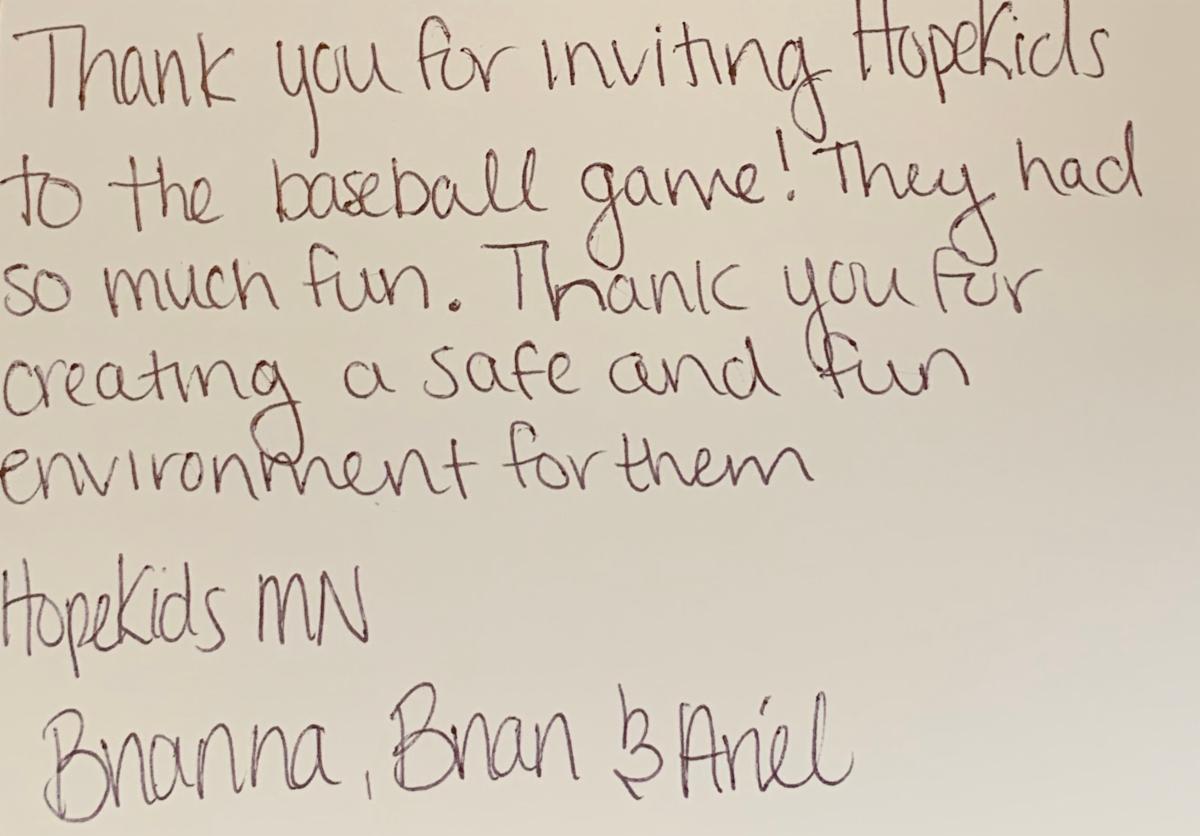 Thank you for inviting HopeKids
to the baseball game! They had
so much fun. Thank you for
creating a safe and fun
environment for them
HopeKids MN
Brianna, Brian & Ariel